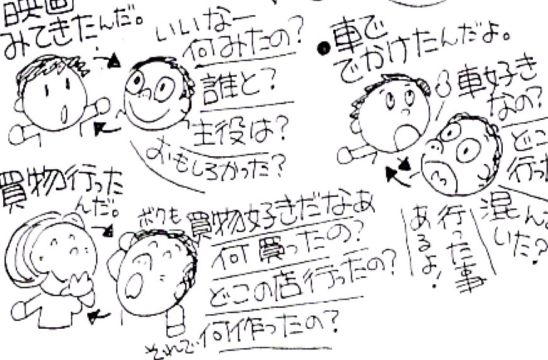 映画
みてきたんだ。
いいなー
何みたの?
誰と?
主役は?
おもしろかった?
●車で
でかけたんだよ。
車好き
なの?
どこ
行っ
混ん
いた?
行った事
あるよ!
買物行った
んだ。
ボクも買物好きだなぁ
何買ったの?
どこの店行ったの?
それで何作ったの?